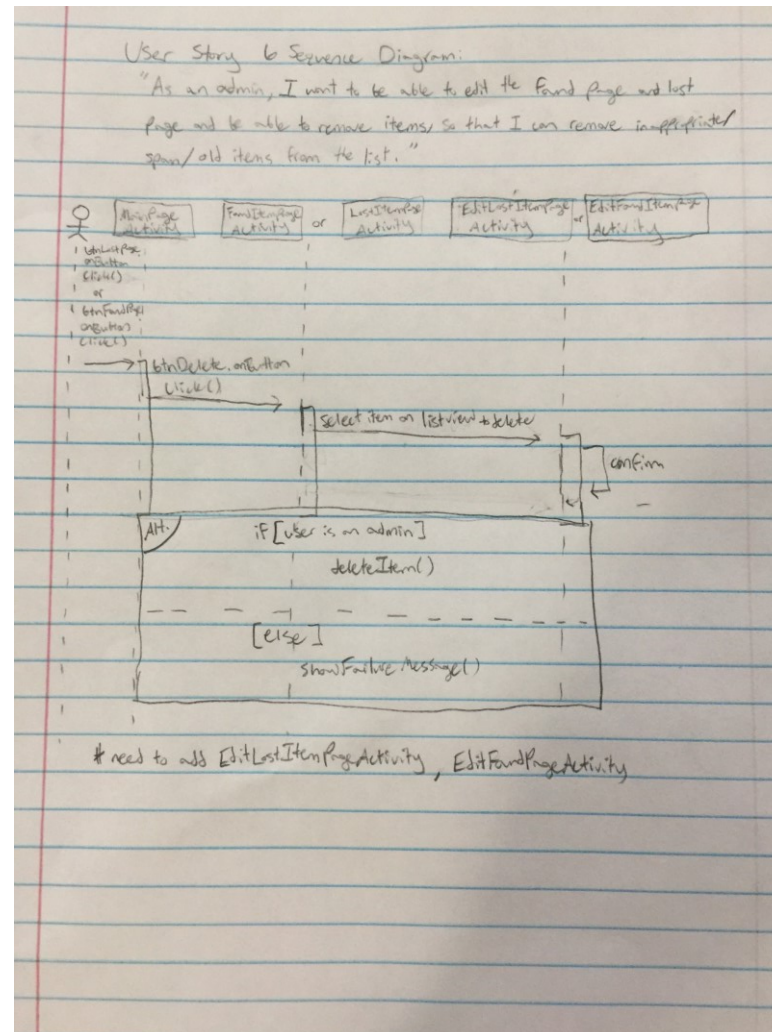 User Story 6 Sequence Diagram:
"As an admin, I want to be able to edit the Found page and lost
page and be able to remove items, so that I can remove inappropriate/
spam/old items from the list."
MainPage
Activity
FoundItemPage
Activity
or
LostItemPage
Activity
EditLostItemPage
Activity
or
EditFoundItemPage
Activity
btnLostPage.
onButton
Click()
or
btnFoundPage
onButton
Click()
btnDelete.onButton
Click()
Select item on listview to delete
confirm
Alt.
if [user is an admin]
deleteItem()
[else]
showFailureMessage()
* need to add EditLostItemPageActivity, EditFoundPageActivity